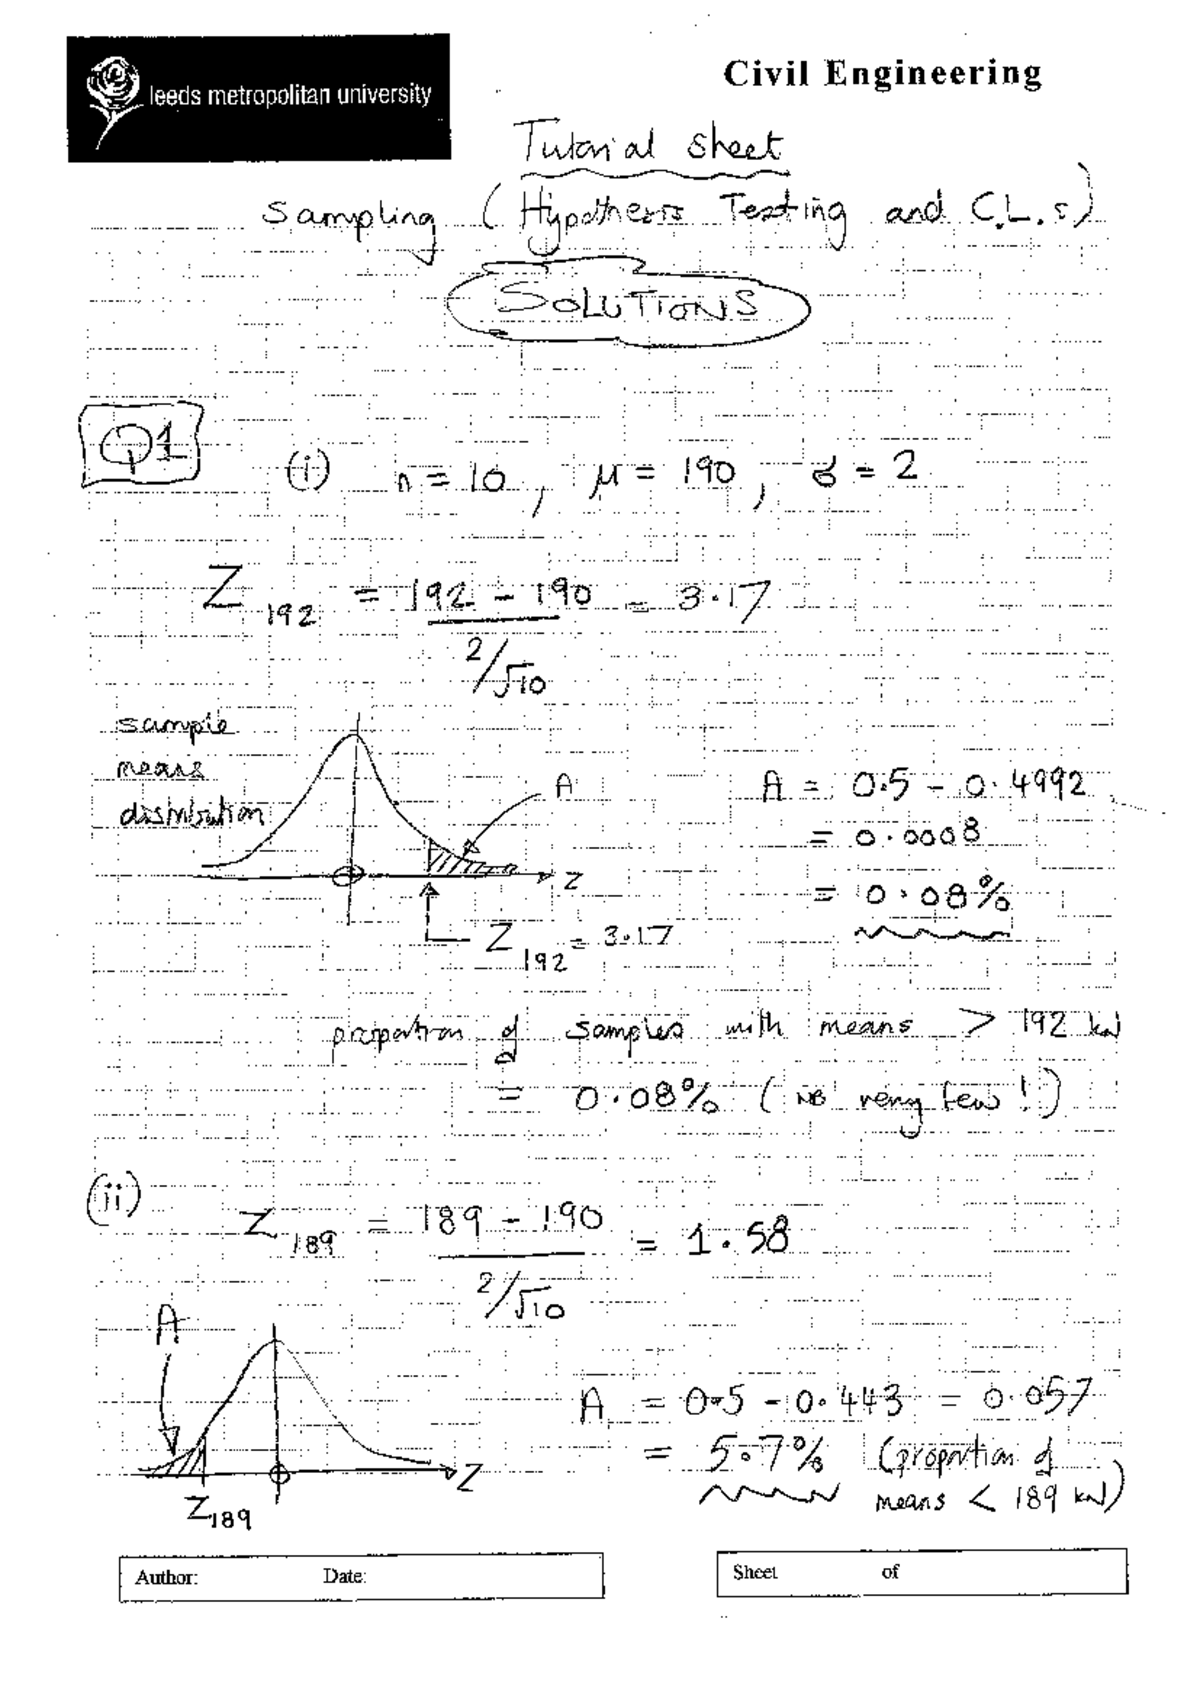 leeds metropolitan university
Civil Engineering
Tutorial sheet
Sampling (Hypothesis Testing and C.L.s)
SOLUTIONS
Q1
(i) n = 10, μ = 190, σ = 2
Z 192 = 192 - 190 = 3.17
2/√10
sample
means
distribution
A
A = 0.5 - 0.4992
= 0.0008
= 0.08%
Z
Z 192 = 3.17
proportion of samples with means > 192 kN
= 0.08% (NB very few!)
(ii)
Z 189 = 189 - 190 = 1.58
2/√10
A
A = 0.5 - 0.443 = 0.057
= 5.7% (proportion of
means < 189 kN)
Z
Z189
Author: Date:
Sheet of